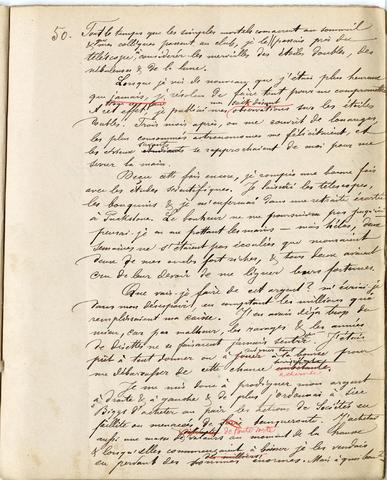 50. Tout le temps que les simples mortels consacrent au sommeil
& mes collègues passent au club, je le passais près du
télescope, à considérer les merveilles des étoiles doubles, des
nébuleuses & de la lune.
Lorsque je vis de nouveau que j'étais plus heureux
que jamais, je résolus de faire tout pour me compromettre
A cet effet, je publiai mes observations sur les étoiles
doubles. Trois mois après, on me couvrit de louanges,
les plus consommés astronomes me félicitèrent, et
les savants se rapprochaient de moi pour me
serrer la main.
cette fois encore, je rompis une bonne fois
avec les études scientifiques. Je laissai les télescopes,
les bouquins & je m'enfermai dans une retraite écartée
à Le bonheur ne me poursuivra pas jusqu'ici
pensai-je en me frottant les mains — mais hélas, deux
semaines ne s'étaient pas écoulées que mouraient
deux de mes oncles fort riches, & tous deux avaient
cru de leur devoir de me léguer leurs fortunes.
Que vais-je faire de cet argent? m'écriai-je
dans mon désespoir, en comptant les millions qui
remplissaient ma caisse. J'en avais déjà trop du
mien, car par malheur, les ravages & les années
de disette ne se faisaient jamais sentir. J'étais
prêt à tout donner ou à jouer à la bourse pour
me débarrasser de cette chance
Je me mis donc à prodiguer mon argent
à droite & à gauche & de plus j'ordonnai à
d'acheter au pair les actions de Sociétés en
faillite ou menacées de banqueroute. J'achetai
aussi une masse de valeurs au moment de la hausse
& lorsqu'elles commençaient à baisser je les vendais
en perdant des sommes énormes. Mais à quoi bon?